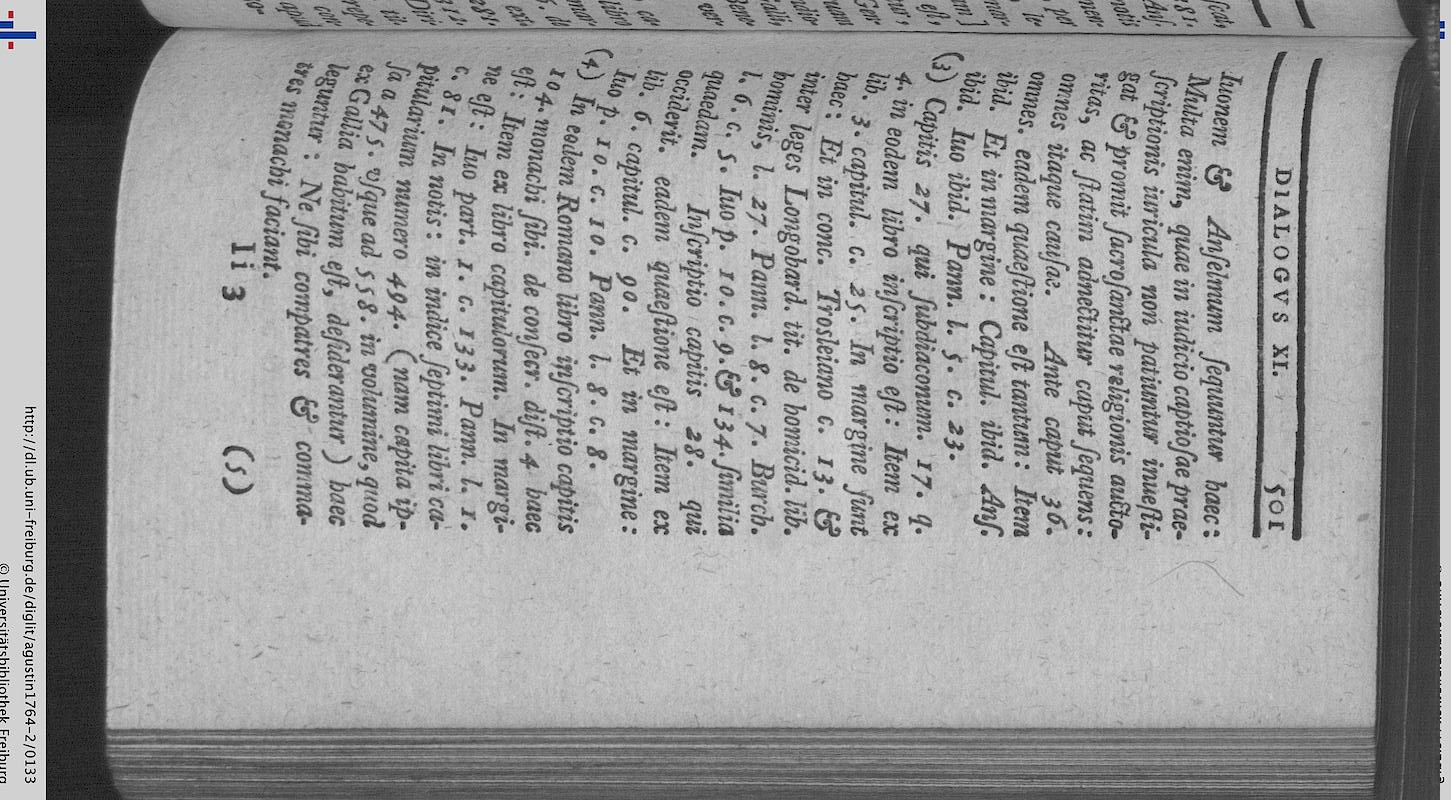 DIALOGVS XI. 501
Iuonem & Anſelmum ſequuntur haec:
Multa enim, quae in iudicio captioſae prae-
ſcriptionis iuricula non patiuntur inueſti-
gat & promit ſacroſanctae religionis aucto-
ritas, ac ſtatim adnectitur caput ſequens:
omnes itaque cauſae. Ante caput 36.
omnes. eadem quaeſtione eſt tantum: Item
ibid. Et in margine: Capitul. ibid. Anſ.
ibid. Iuo ibid. Pann. l. 5. c. 23.
(3) Capitis 27. qui ſubdiaconum. 17. q.
4. in eodem libro inſcriptio eſt: Item ex
lib. 3. capitul. c. 25. In margine ſunt
haec: Et in conc. Trosleiano c. 13. &
inter leges Longobard. tit. de homicid. lib.
hominis, l. 27. Pann. l. 8. c. 7. Burch.
l. 6. c. 5. Iuo p. 10. c. 9. & 134. ſimilia
quaedam. Inſcriptio capitis 28. qui
occiderit. eadem quaeſtione eſt: Item ex
lib. 6. capitul. c. 90. Et in margine:
Iuo p. 10. c. 10. Pann. l. 8. c. 8.
(4) In eodem Romano libro inſcriptio capitis
104. monachi ſibi. de conſecr. diſt. 4. haec
eſt: Item ex libro capitulorum. In margi-
ne eſt: Iuo part. 1. c. 133. Pann. l. 1.
c. 81. In notis: in indice ſeptimi libri ca-
pitularium numero 494. (nam capita ip-
ſa a 475. vſque ad 558. in volumine, quod
ex Gallia habitum eſt, deſiderantur) haec
leguntur: Ne ſibi compatres & comma-
tres monachi faciant.
Ii 3 (5)
http://dl.ub.uni-freiburg.de/diglit/agustin1764-2/0133
© Universitätsbibliothek Freiburg